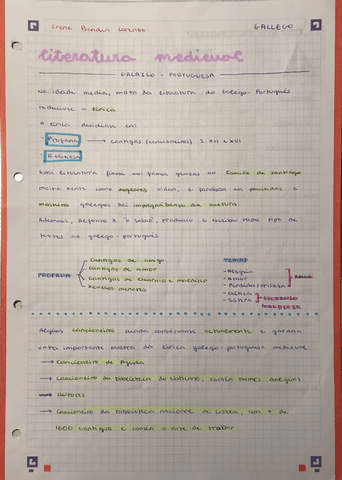 Irene Bandin GALLEGO
literatura medieval
GALAICO - PORTUGUESA
Na idade media, moita da literatura do Galego-Portugués
redúcese a lírica
A lírica divídese en:
· Profana → cantigas (cancioneiros) S. XII e XVI
· Relixiosa
Esta literatura foise formando grazas ao Camiño de Santiago
moita xente como xograres viñan, e paraban en pousadas e
mosteiros galegos. Así impregnábanse da cultura.
Ademais, Alfonso X "o sabio", traduciu e escribiu todo tipo de
textos en galego-portugués
PROFANA
Cantigas de amigo
Cantigas de amor
Cantigas de escarnio e maldicir
Xéneros menores
TEMAS
· Alegría
· Amor
· Perdida/tristeza
AMOR
· Crítica
· Sátira
ESCARNIO
MALDICIR
Algúns cancioneiros, aínda consérvanse actualmente e gardan
unha importante mostra da lírica galego-portuguesa medieval
→ Cancioneiro de Ajuda
→ Cancioneiro da Biblioteca do Vaticano, contén nomes dalgúns
→ autores
→ Cancioneiro da biblioteca nacional de Lisboa, con + de
400 cantigas e contén a arte de trobar